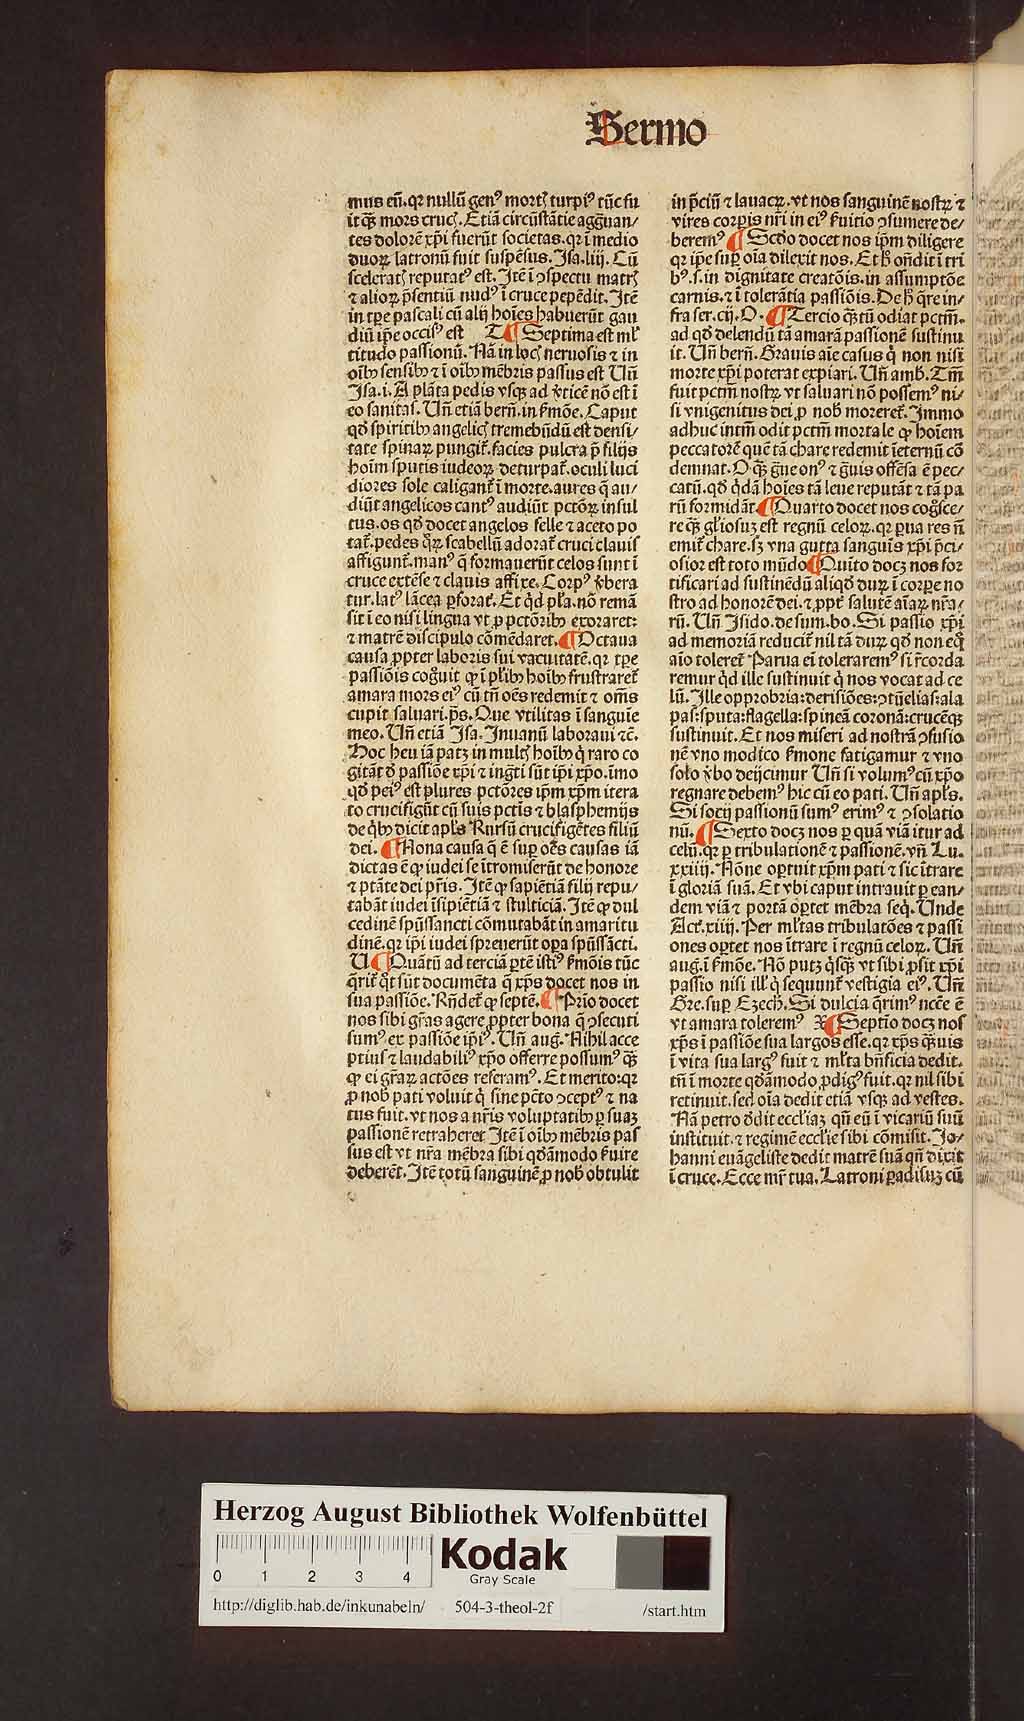 Sermo
mus eū. qꝛ nullū genꝰ mortꝭ turpiꝰ tūc fu
it qꝫ̄ mors crucꝭ. Etiā circūstātie aggͣuan/
tes dolorē xp̄i fuerūt societas. qꝛ ī medio
duoꝝ latronū fuit suspēsus. Jsa. liij. Cū
sceleratꝭ reputatꝰ est. Jtē ī ↄspectu matrꝭ
⁊ alioꝝ p̄sentiū nudꝰ ī cruce pepēdit. Jtē
in tꝑe pascali cū alij hoīes habuerūt gau
diū ip̄e occisꝰ est T ¶ Septima est ml̓
titudo passionū. Nā in locꝭ neruosis ⁊ in
oībꝫ sensibꝫ ⁊ ī oībꝫ mēbris passus est Un̄
Jsa. i. A plāta pedis vsqꝫ ad v̓ticē nō est ī
eo sanitas. Un̄ etiā bern̄. in ẜmōe. Caput
qd̓ spiritibꝫ angelicꝭ tremebūdū est densi/
tate spinaꝝ pungit᷑. facies pulcra p̄ filijs
hoīm sputis iudeoꝝ deturpat᷑. oculi luci
diores sole caligant᷑ ī morte. aures q̄ au/
diūt angelicos cantꝰ audiūt pctōꝝ insul
tus. os qd̓ docet angelos felle ⁊ aceto po
tat᷑. pedes qͦꝝ scabellū adorat᷑ cruci clauis
affigunt᷑. manꝰ q̄ formauerūt celos sunt ī
cruce extēse ⁊ clauis affixe. Corpꝰ v̓bera
tur. latꝰ lācea ꝑforat᷑. Et qͥd pl̓a. nō remā
sit ī eo nisi lingua vt ꝓ pctōribꝫ exoraret:
⁊ matrē discipulo cōmēdaret. ¶ Octaua
causa ꝓpter laboris sui vacuitatē. qꝛ tꝑe
passiōis cogͦuit ꝙ ī pl̓ibꝫ hoībꝫ frustraret᷑
amara mors eiꝰ cū tn̄ oēs redemit ⁊ om̄s
cupit saluari. p̄s. Que vtilitas ī sanguīe
meo. Un̄ etiā Jsa. Jnuanū laboraui ⁊c̄.
Hoc heu iā patꝫ in multꝭ hoībꝫ qͥ raro co
gitāt d̓ passiōe xp̄i ⁊ ingͣti sūt ip̄i xp̄o. imo
qd̓ peiꝰ est plures pctōres ip̄m xp̄m itera
to crucifigūt cū suis pctīs ⁊ blasphemijs
de qͥbꝫ dicit apl̓s Rursū crucifigētes filiū
dei. ¶ Nona causa q̄ ē suꝑ oēs causas iā
dictas ē ꝙ iudei se ītromiserūt de honore
⁊ ptāte dei pr̄is. Jtē ꝙ sapiētiā filij repu/
tabāt iudei īsipiētiā ⁊ stulticiā. Jtē ꝙ dul
cedinē spūssancti cōmutabāt in amaritu
dinē. qꝛ ip̄i iudei spreuerūt oꝑa spūssācti.
U ¶ Quātū ad terciā ꝑtē istiꝰ ẜmōis tūc
q̄rit᷑ qͦt sūt documēta q̄ xp̄s docet nos in
sua passiōe. Rn̄det᷑ ꝙ septē. ¶ Prīo docet
nos sibi gr̄as agere ꝓpter bona q̄ ↄsecuti
sumꝰ ex passiōe ip̄iꝰ. Un̄ aug. Nihil acce
ptiuſ ⁊ laudabiliꝰ xp̄o offerre possumꝰ qꝫ̄
ꝙ ei gr̄aꝝ actōes referamꝰ. Et merito: qꝛ
ꝓ nob̓ pati voluit qͥ sine pctō ↄceptꝰ ⁊ na
tus fuit. vt nos a nr̄is voluptatibꝫ ꝑ suaꝫ
passionē retraheret Jtē ī oībꝫ mēbris pas
sus est vt nr̄a mēbra sibi qd̓āmodo ẜuire
deberēt. Jtē totū sanguinē ꝓ nob̓ obtulit
in p̄ciū ⁊ lauacꝝ. vt nos sanguinē nostꝝ ⁊
vires corꝑis nr̄i in eiꝰ ẜuitio ↄsumere de/
beremꝰ ¶ Scd̓o docet nos ip̄m diligere
qꝛ ip̄e suꝑ oīa dilexit nos. Et h̓ on̄dit ī tri
bꝰ. s. in dignitate creatōis. in assumptōe
carnis. ⁊ ī tolerātia passiōis. De h̓ qͣre in/
fra ser. cij. O. ¶ Tercio qͣꝫtū odiat pctm̄.
ad qd̓ delendū tā amarā passionē sustinu
it. Un̄ bern̄. Grauis aīe casus qͥ non nisi
morte xp̄i poterat expiari. Un̄ amb̓. Tm̄
fuit pctm̄ nostꝝ vt saluari nō possemꝰ ni/
si vnigenitus dei ꝓ nob̓ moreret᷑. Jmmo
adhuc intm̄ odit pctm̄ mortale ꝙ hoīem
peccatorē quē tā chare redemit īeternū cō
demnat. O qꝫ̄ gͣue onꝰ ⁊ gͣuis offēsa ē pec/
catū. qd̓ qͥdā hoīes tā leue reputāt ⁊ tā pa
rū formidāt. ¶ Quarto docet nos cogͦsce/
re qꝫ̄ gl̓iosuꝫ est regnū celoꝝ. qꝛ ꝑua res n̄
emit᷑ chare. sꝫ vna gutta sanguīs xp̄i p̄ci/
osior est toto mūdo ¶ Quīto docꝫ nos for
tificari ad sustinēdū aliqd̓ duꝝ ī corꝑe no
stro ad honorē dei. ⁊ ꝓpt᷑ salutē aīaꝝ nr̄a/
rū. Un̄ Jsido. de sum. bo. Si passio xp̄i
ad memoriā reducit᷑ nil tā duꝝ qd̓ non eqͦ
aīo toleret᷑ Parua ei toleraremꝰ si r̄corda
remur qͥd ille sustinuit qͥ nos vocat ad ce
lū. Jlle opprobria: derisiōes: ↄtūelias: ala
pas: sputa: flagella: spineā coronā: crucēqꝫ
sustinuit. Et nos miseri ad nostrā ↄfusio
nē vno modico ẜmone fatigamur ⁊ vno
solo v̓bo deijcimur Un̄ si volumꝰ cū xp̄o
regnare debemꝰ hic cū eo pati. Un̄ apl̓s.
Si socij passionū sumꝰ erimꝰ ⁊ ↄsolatio
nū. ¶ Sexto docꝫ nos ꝑ quā viā itur ad
celū. qꝛ ꝑ tribulationē ⁊ passionē. vn̄ Lu.
xxiiij. Nōne oꝑtuit xp̄m pati ⁊ sic ītrare
ī gloriā suā. Et vbi caput intrauit ꝑ ean/
dem viā ⁊ portā oꝑtet mēbra seqͥ. Unde
Act᷑. xiiij. Per ml̓tas tribulatōes ⁊ passi
ones oꝑtet nos ītrare ī regnū celoꝝ. Un̄
aug. ī ẜmōe. Nō putꝫ qͥsqꝫ vt sibi ꝓsit xp̄i
passio nisi ill̓ qͥ sequunt᷑ vestigia eiꝰ. Un̄
Gre. suꝑ Ezech. Si dulcia q̄rimꝰ ncc̄e ē
vt amara toleremꝰ X ¶ Septīo docꝫ nos
xp̄s ī passiōe sua largos esse. qꝛ xp̄s qꝫ̄uis
ī vita sua largꝰ fuit ⁊ ml̓ta bn̄ficia dedit.
tn̄ ī morte qd̓āmodo ꝓdigꝰ fuit. qꝛ nil sibi
retinuit. sed oīa dedit etiā vsqꝫ ad vestes.
Nā petro d̓dit eccl̓iaꝫ qn̄ eū ī vicariū suū
instituit. ⁊ regimē eccl̓ie sibi cōmisit. Jo/
hanni euāgeliste dedit matrē suā qn̄ dixit
ī cruce. Ecce mr̄ tua. Latroni ꝑadisuꝫ cū
Herzog August Bibliothek Wolfenbüttel
0 1 2 3 4
Kodak
Gray Scale
http://diglib.hab.de/inkunabeln/ 504-3-theol-2f /start.htm